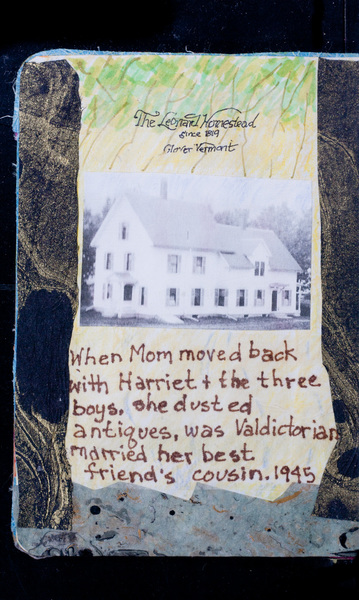 The Leonard Homestead
since 1819
Glover Vermont
When Mom moved back
with Harriet + the three
boys, she dusted
antiques, was Valdictorian
married her best
friend's cousin. 1945